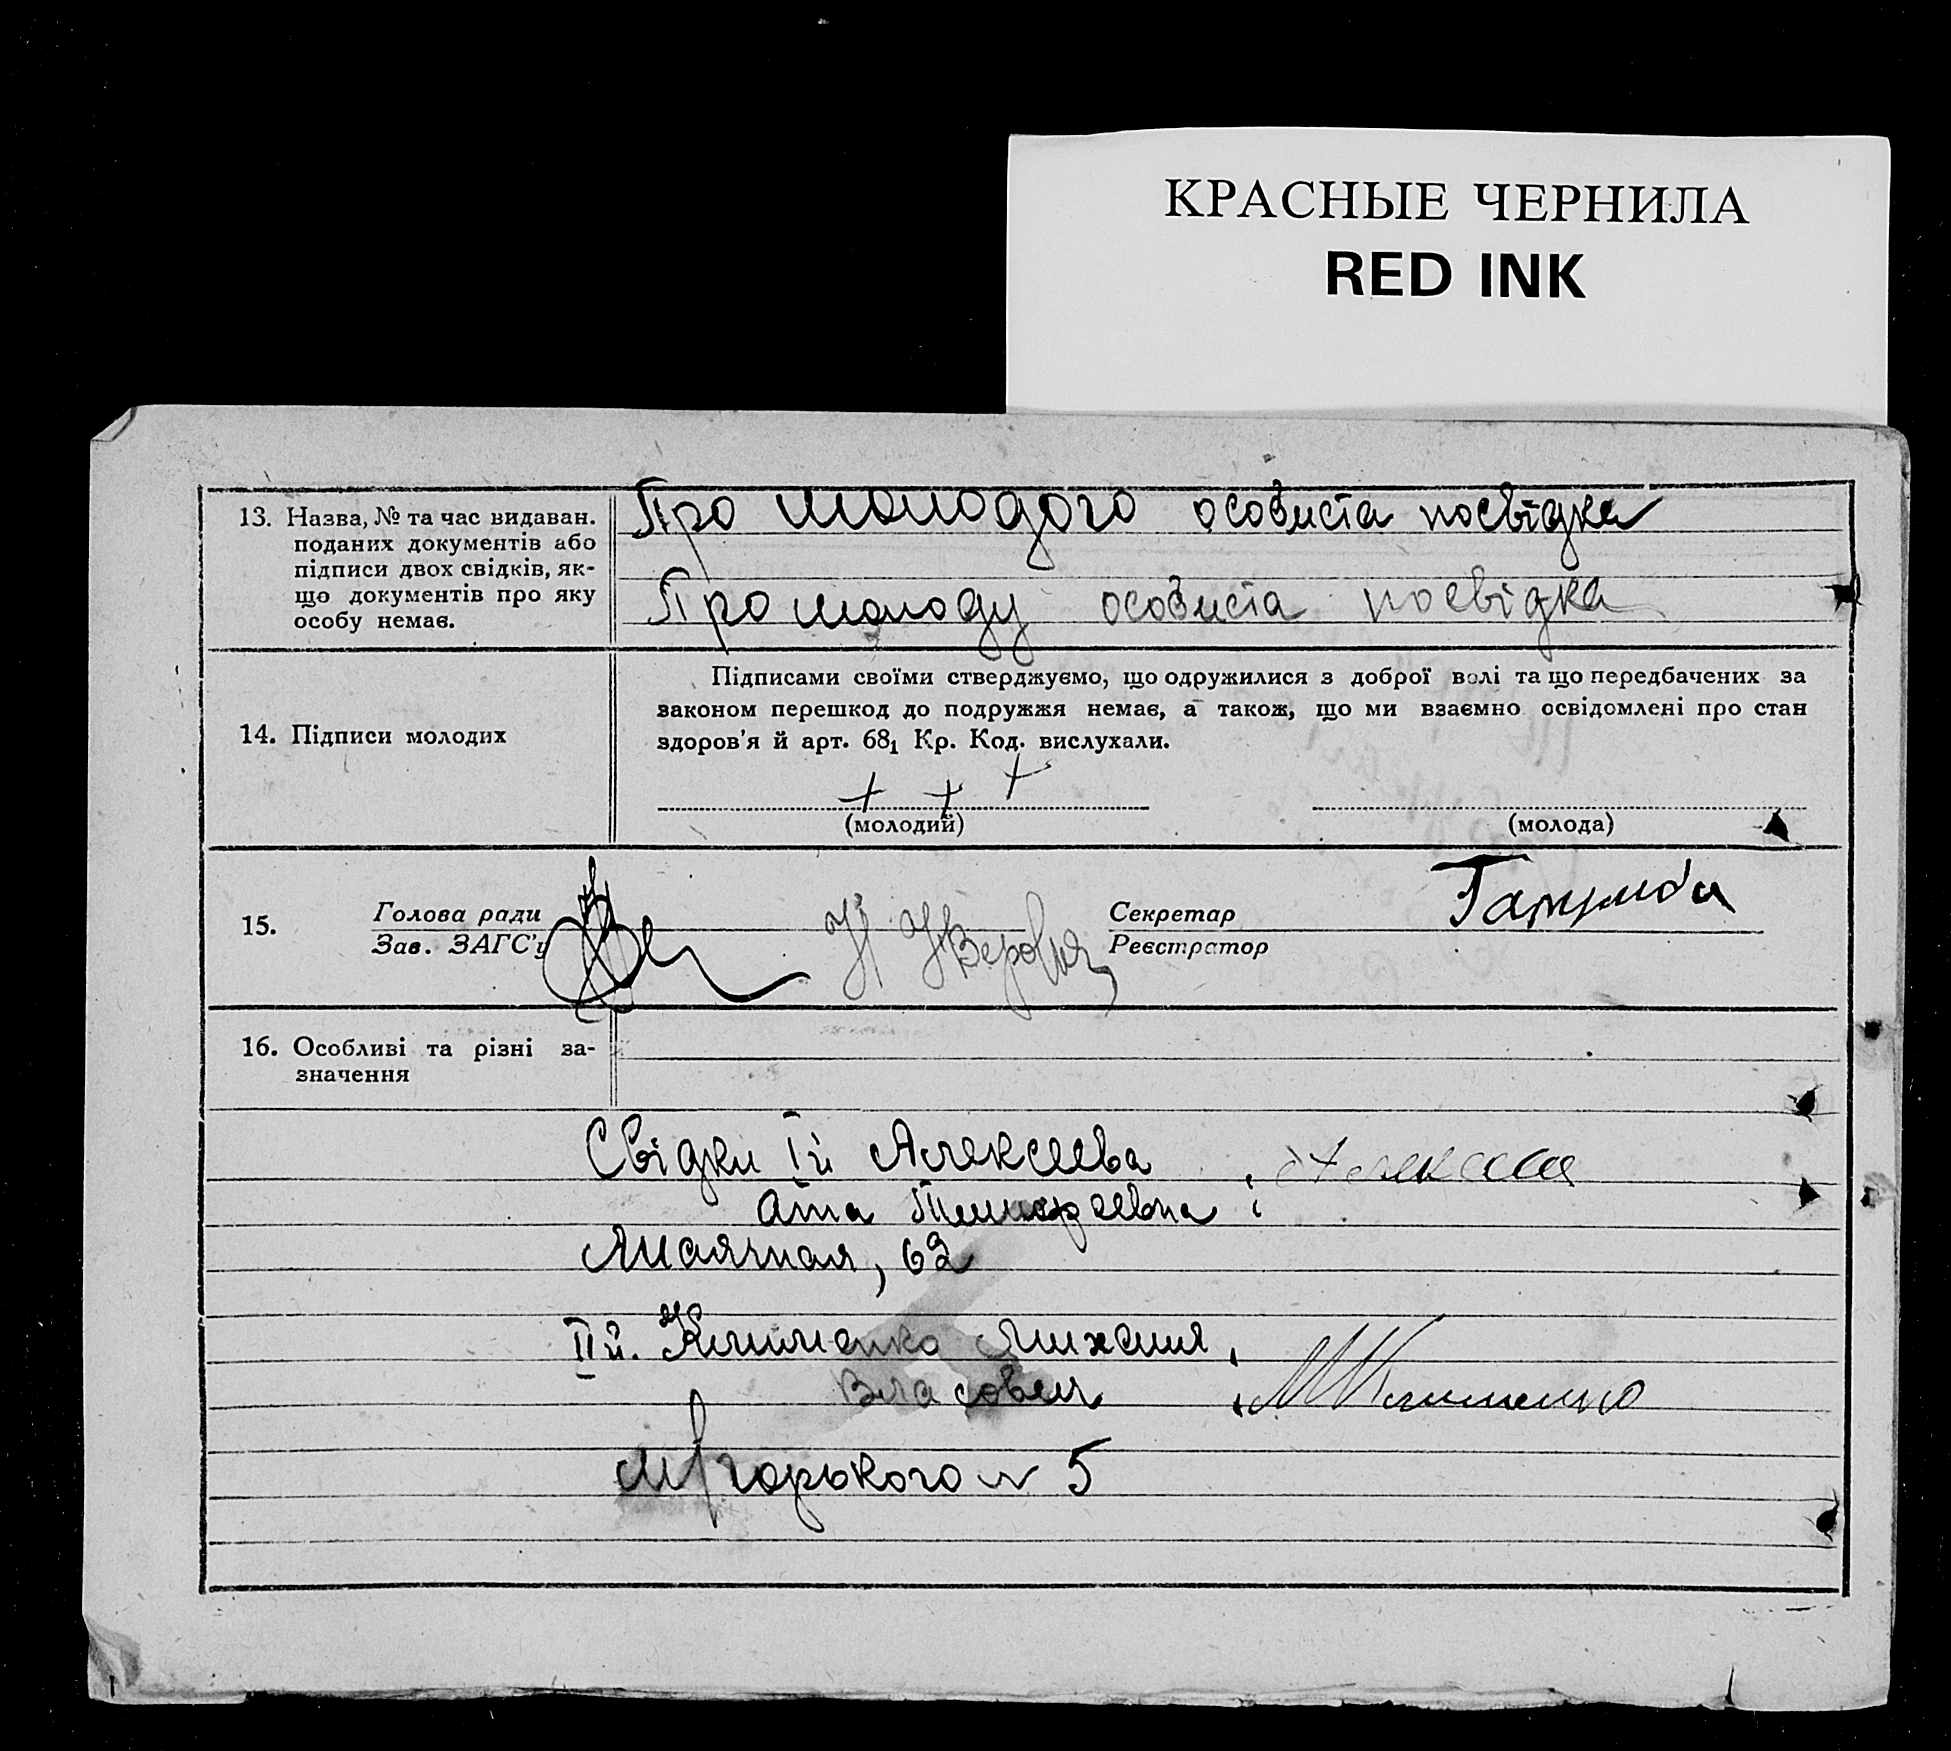 КРАСНЫЕ ЧЕРНИЛА
RED INK
13. Назва, № та час видаван.
поданих документів або
підписи двох свідків, як-
що документів про яку
особу немає.
Про молодого особиста посвідка
Про молоду особиста посвідка
14. Підписи молодих
Підписами своїми стверджуємо, що одружилися з доброї волі та що передбачених за
законом перешкод до подружжя немає, а також, що ми взаємно освідомлені про стан
здоров'я й арт. 68₁ Кр. Код. вислухали.
+ + +
(молодий)
(молода)
15.
Голова ради
Зав. ЗАГС'у
Секретар
Реєстратор
16. Особливі та різні за-
значення
Свідки Iй Алексеева
Маячная, 62
IIй. Клименко Михаил,
Власович, МКлименко
Горького № 5